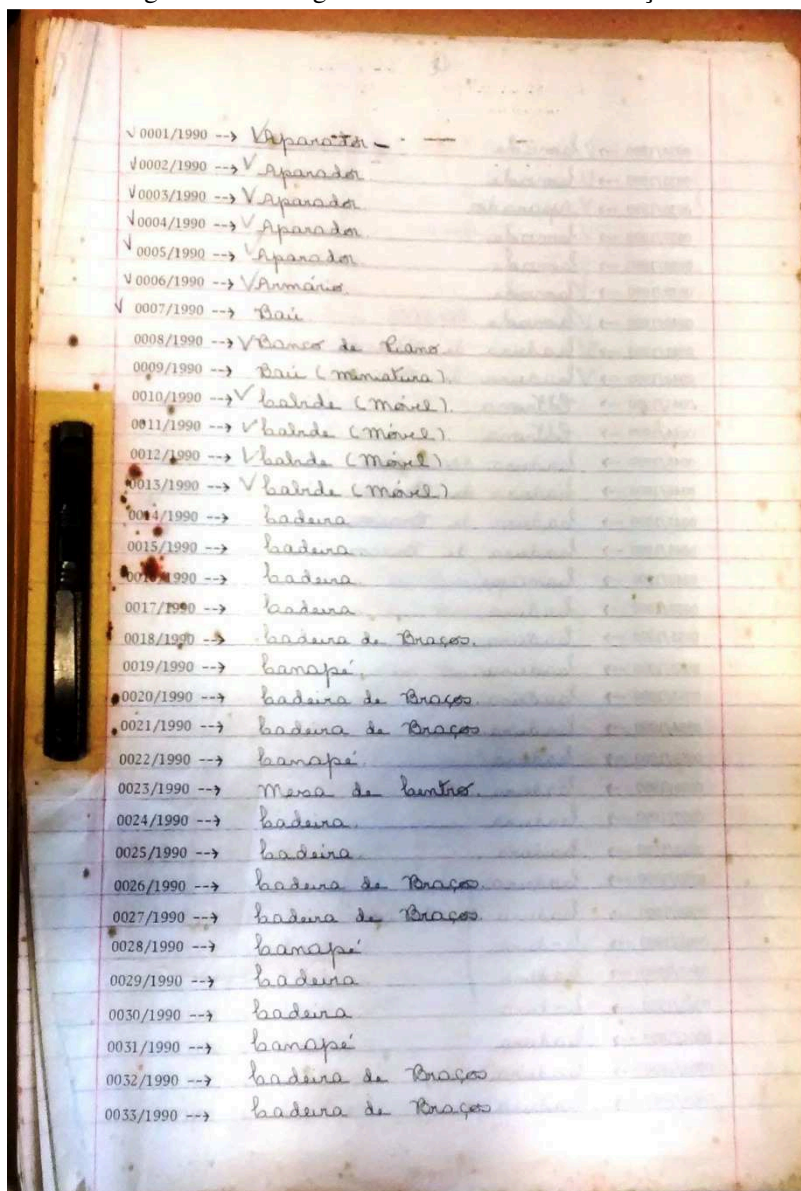 √ 0001/1990 --> √ Aparador -
√ 0002/1990 --> √ Aparador
√ 0003/1990 --> √ Aparador.
√ 0004/1990 --> √ Aparador.
√ 0005/1990 --> √ Aparador
√ 0006/1990 --> √ Armário.
√ 0007/1990 --> Baú
0008/1990 --> √ Banco de Piano.
0009/1990 --> Baú (miniatura).
0010/1990 --> √ Cabide (móvel).
0011/1990 --> √ Cabide (móvel)
0012/1990 --> √ Cabide (móvel)
0013/1990 --> √ Cabide (móvel)
0014/1990 --> Cadeira
0015/1990 --> Cadeira
0016/1990 --> Cadeira.
0017/1990 --> Cadeira
0018/1990 --> Cadeira de Braços.
0019/1990 --> Canapé.
0020/1990 --> Cadeira de Braços.
0021/1990 --> Cadeira de Braços
0022/1990 --> Canapé.
0023/1990 --> Mesa de Centro.
0024/1990 --> Cadeira.
0025/1990 --> Cadeira.
0026/1990 --> Cadeira de Braços.
0027/1990 --> Cadeira de Braços.
0028/1990 --> Canapé
0029/1990 --> Cadeira
0030/1990 --> Cadeira
0031/1990 --> Canapé
0032/1990 --> Cadeira de Braços
0033/1990 --> Cadeira de Braços